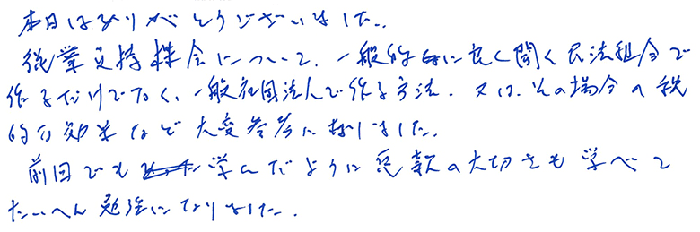 本日はありがとうございました。
従業員持株会について、一般的に良く聞く民法組合で
作るだけでなく、一般社団法人で作る方法、又は、その場合の税
的な効果など大変参考になりました。
前回でも学んだように定款の大切さも学べて
たいへん勉強になりました。